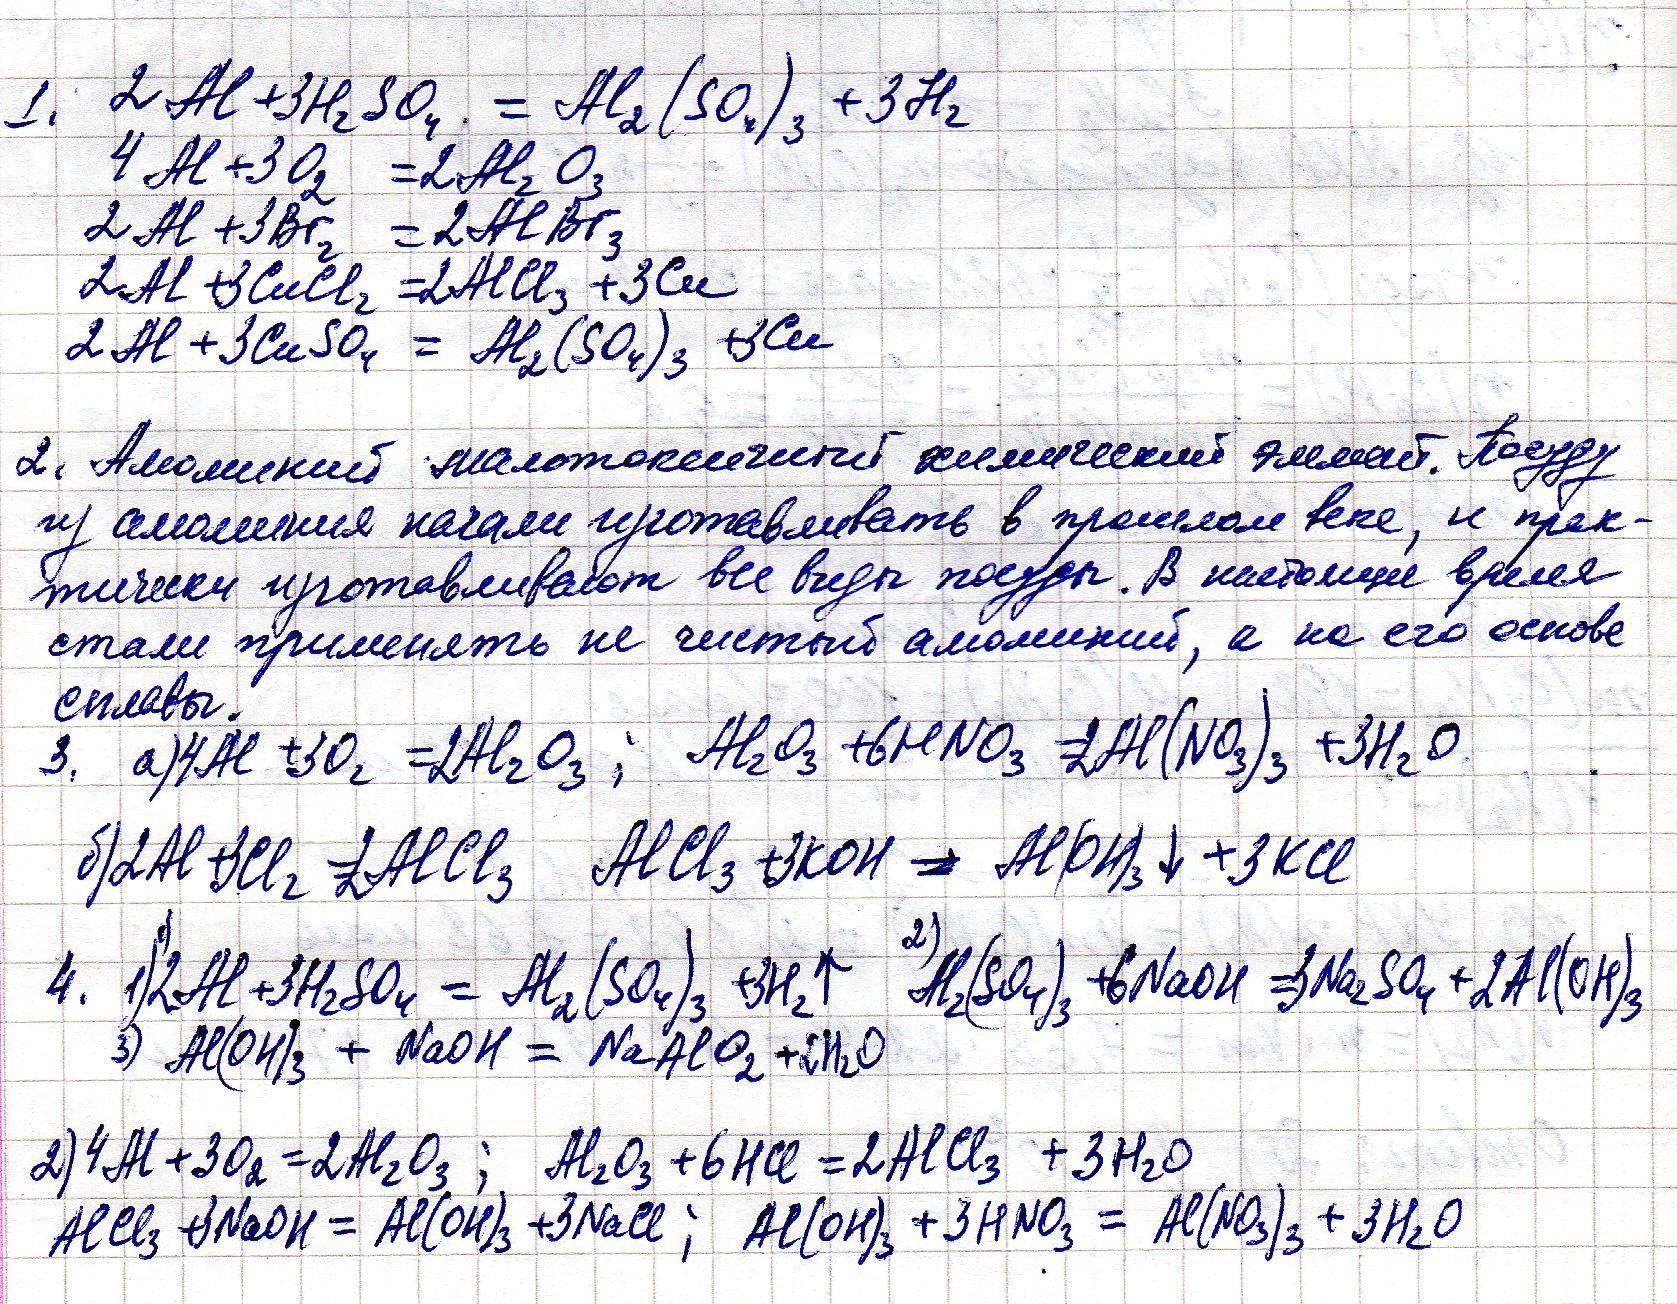 1. 2Al + 3H₂SO₄ = Al₂(SO₄)₃ + 3H₂
4Al + 3O₂ = 2Al₂O₃
2Al + 3Br₂ = 2AlBr₃
2Al + 3CuCl₂ = 2AlCl₃ + 3Cu
2Al + 3CuSO₄ = Al₂(SO₄)₃ + 3Cu
2. Алюминий малотоксичный химический элемент. Посуду
из алюминия начали изготавливать в прошлом веке, и прак-
тически изготавливают все виды посуды. В настоящее время
стали применять не чистый алюминий, а на его основе
сплавы.
3. а) 4Al + 3O₂ = 2Al₂O₃ ; Al₂O₃ + 6HNO₃ = 2Al(NO₃)₃ + 3H₂O
б) 2Al + 3Cl₂ = 2AlCl₃ AlCl₃ + 3KOH = Al(OH)₃↓ + 3KCl
4. 1) 1) 2Al + 3H₂SO₄ = Al₂(SO₄)₃ + 3H₂↑ 2) Al₂(SO₄)₃ + 6NaOH = 3Na₂SO₄ + 2Al(OH)₃
3) Al(OH)₃ + NaOH = NaAlO₂ + 2H₂O
2) 4Al + 3O₂ = 2Al₂O₃ ; Al₂O₃ + 6HCl = 2AlCl₃ + 3H₂O
AlCl₃ + 3NaOH = Al(OH)₃ + 3NaCl ; Al(OH)₃ + 3HNO₃ = Al(NO₃)₃ + 3H₂O